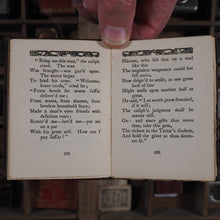 "Bring me this man," the caliph
cried. The man
Was brought—was gaz'd upon.
The mutes began
To bind his arms. "Welcome,
brave cords," cried he;
"From bonds far worse Jaffar
deliver'd me;
From wants, from shames, from
loveless household fears;
Made a man's eyes friends with
delicious tears;
Restor'd me—lov'd me—put me
on a par
With his great self. How can I
pay Jaffar?"
Haroun, who felt that on a soul
like this
The mightiest vengeance could but
fall amiss,
Now deign'd to smile, as one great
lord of fate
Might smile upon another half as
great.
He said, "Let worth grow frenzied,
if it will;
The caliph's judgment shall be
master still.
Go: and since gifts thus move
thee, take this gem,
The richest in the Tartar's diadem,
And hold the giver as thou deemest
fit."